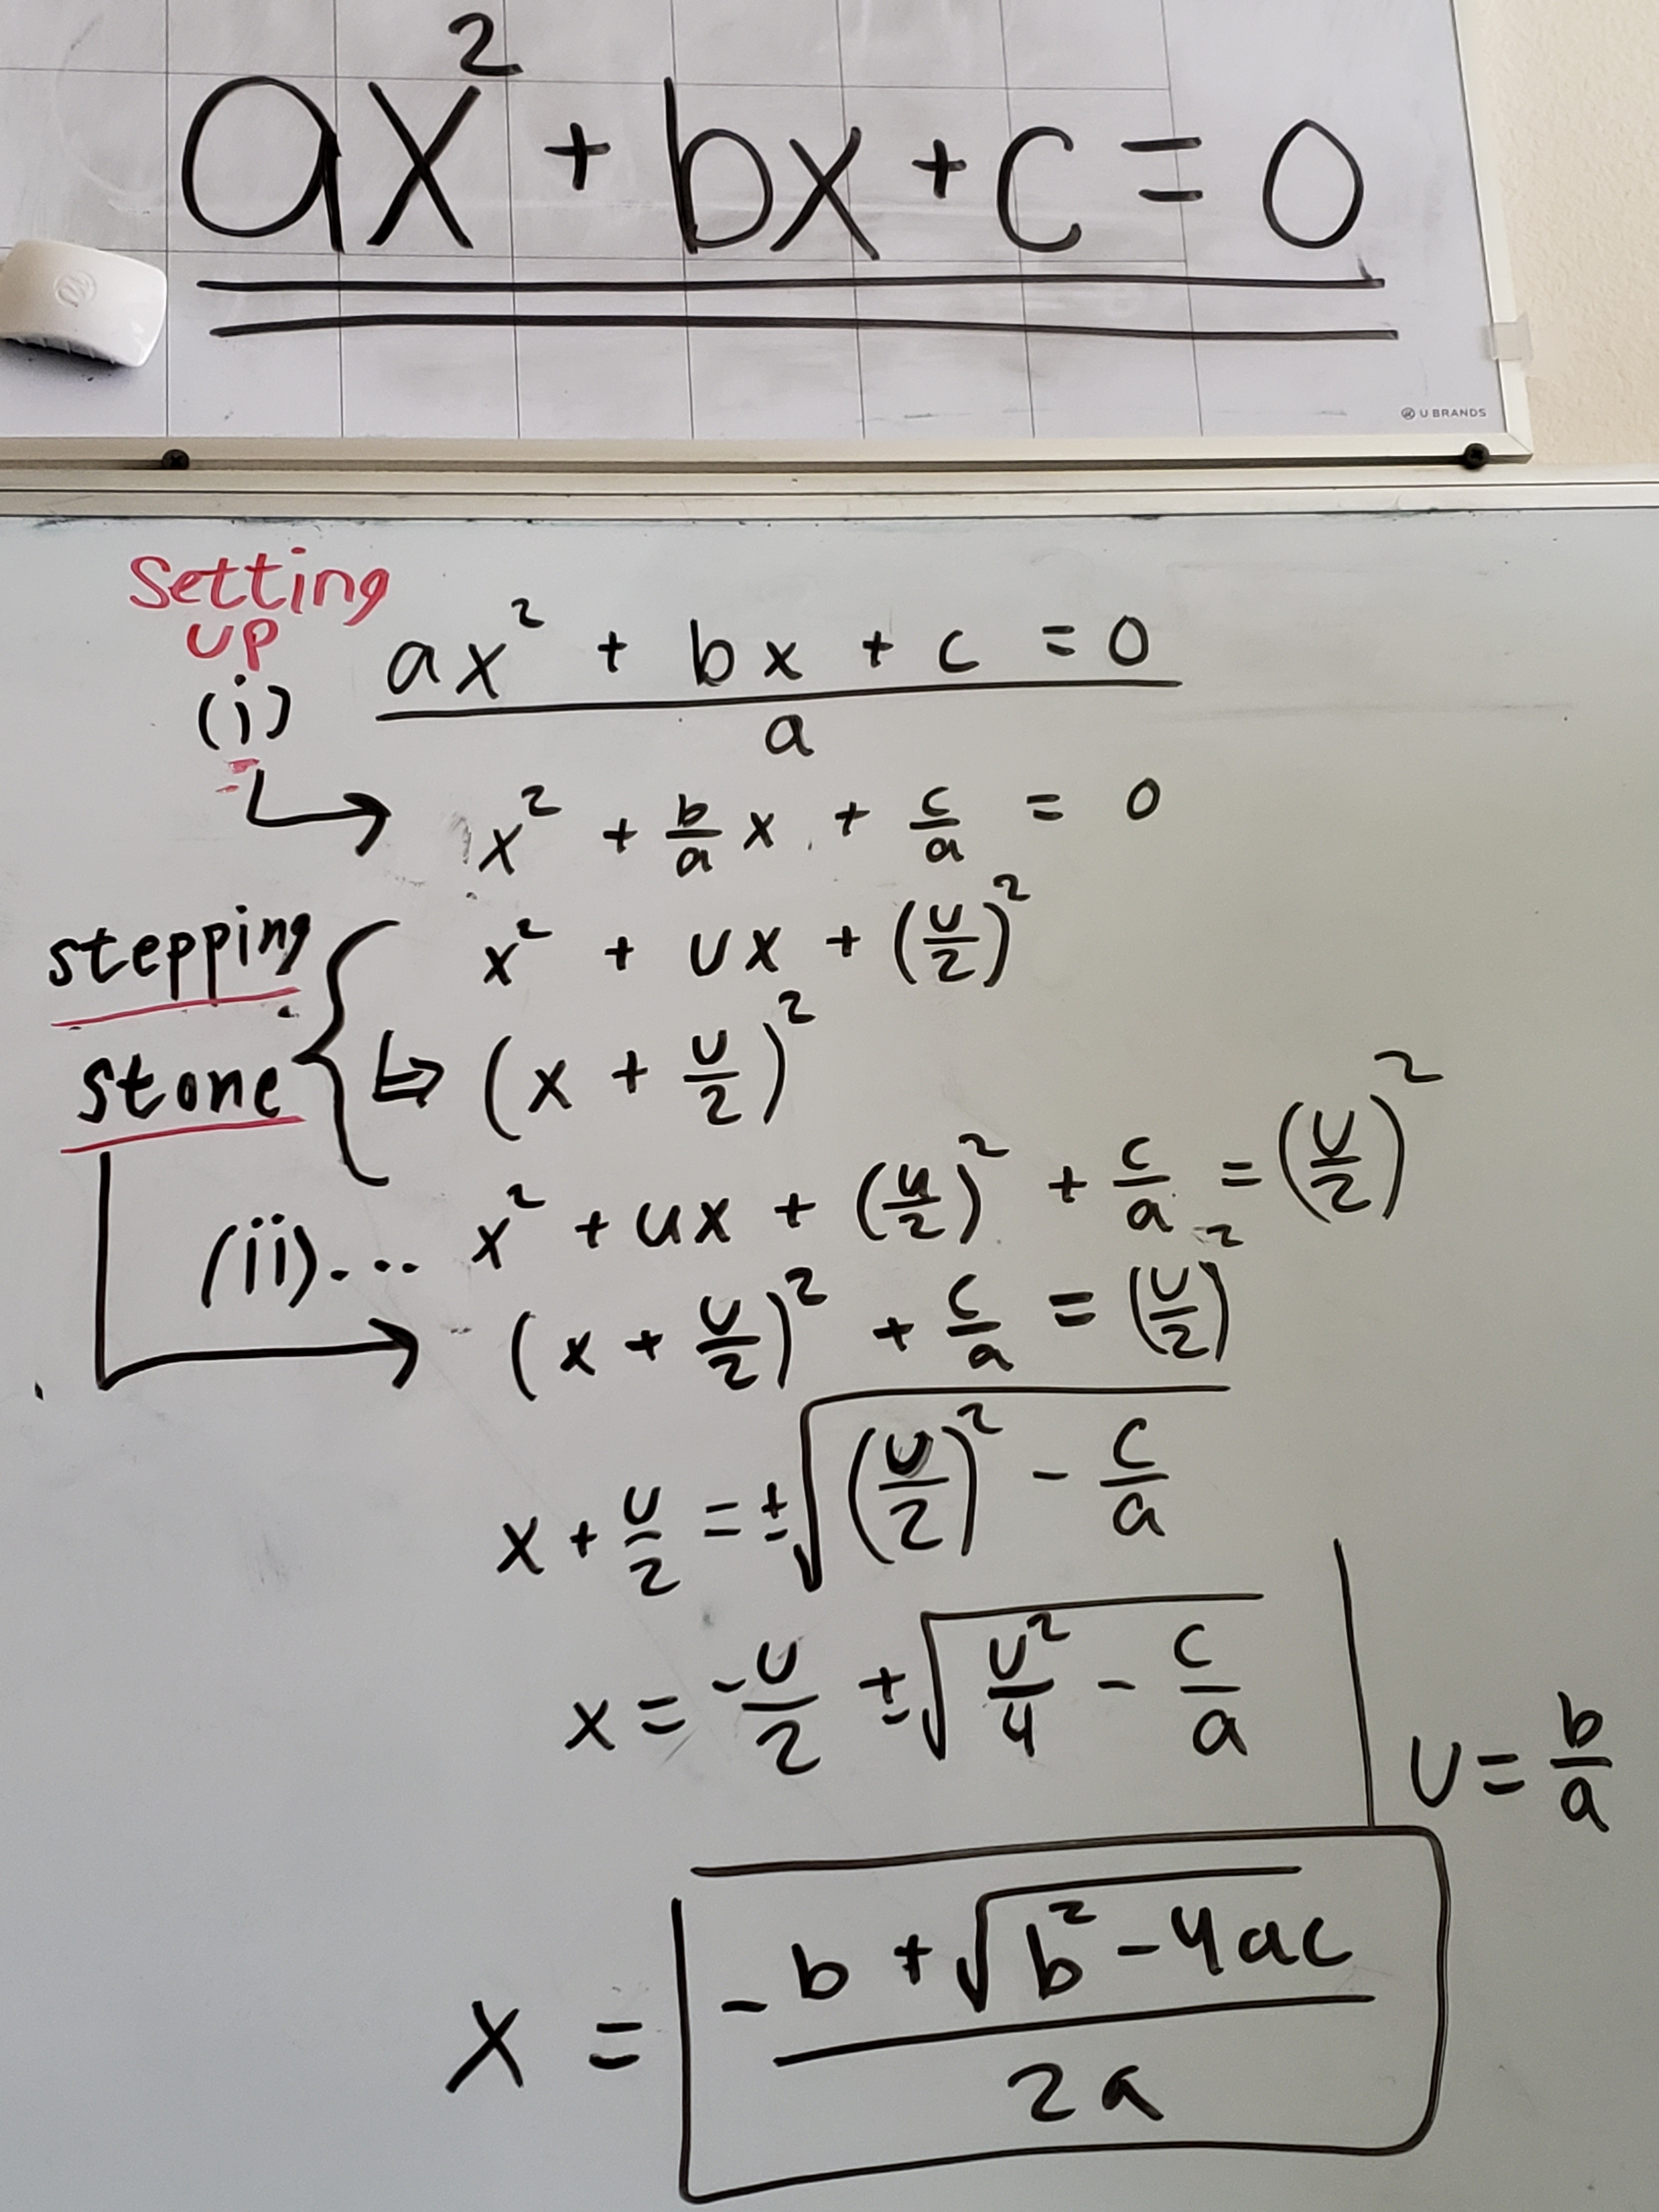 ax² + bx + c = 0
U BRANDS
Setting
UP
(i)
ax² + bx + c = 0
a
x² + b/a x + c/a = 0
stepping
stone
x² + ux + (u/2)²
↳ (x + u/2)²
(ii)... x² + ux + (u/2)² + c/a = (u/2)²
(x + u/2)² + c/a = (u/2)²
x + u/2 = ±√((u/2)² - c/a)
x = -u/2 ± √(u²/4 - c/a)
u = b/a
x = (-b + √(b² - 4ac))/2a